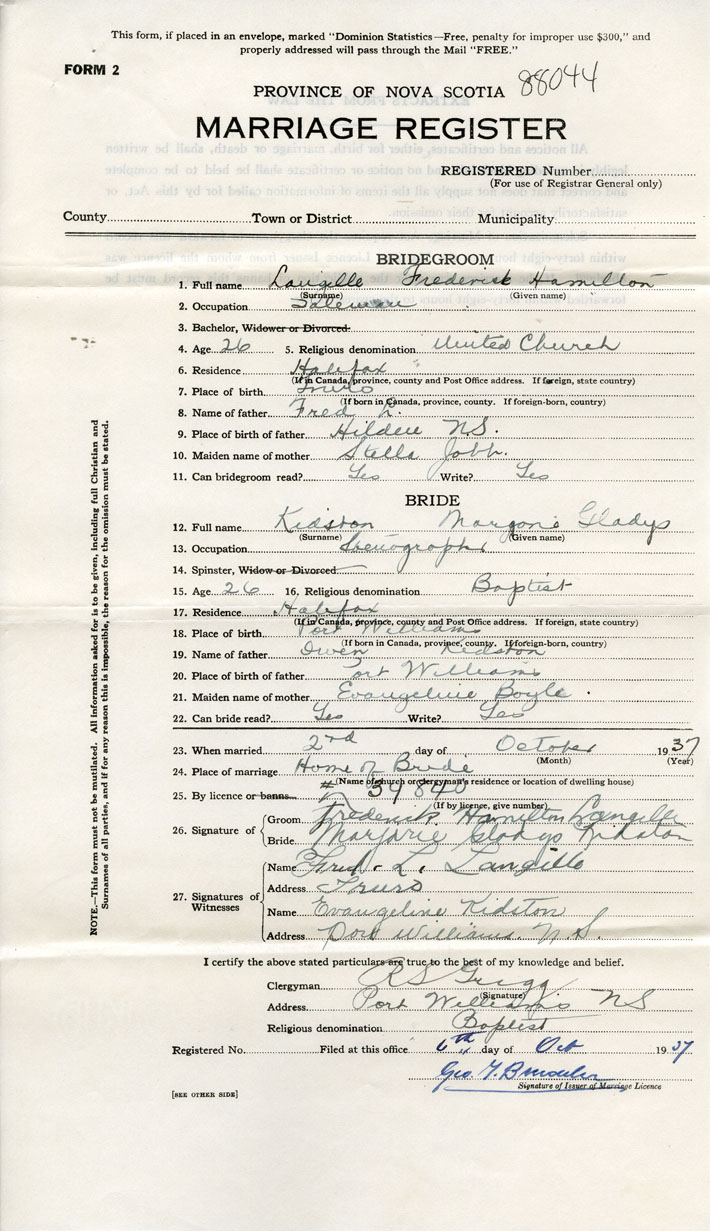 This form, if placed in an envelope, marked "Dominion Statistics—Free, penalty for improper use $300," and
properly addressed will pass through the Mail "FREE."
FORM 2
PROVINCE OF NOVA SCOTIA 88044
MARRIAGE REGISTER
REGISTERED Number
(For use of Registrar General only)
County Town or District Municipality
BRIDEGROOM
1. Full name Langille Frederick Hamilton
(Surname) (Given name)
2. Occupation Salesman
3. Bachelor, Widower or Divorced.
4. Age 26 5. Religious denomination United Church
6. Residence Halifax
(If in Canada, province, county and Post Office address. If foreign, state country)
7. Place of birth Truro
(If born in Canada, province, county. If foreign-born, country)
8. Name of father Fred L.
9. Place of birth of father Hilden N.S.
10. Maiden name of mother Stella Jobb.
11. Can bridegroom read? Yes Write? Yes
BRIDE
12. Full name Kidston Marjorie Gladys
(Surname) (Given name)
13. Occupation Stenographer
14. Spinster, Widow or Divorced
15. Age 26 16. Religious denomination Baptist
17. Residence Halifax
(If in Canada, province, county and Post Office address. If foreign, state country)
18. Place of birth Port Williams
(If born in Canada, province, county. If foreign-born, country)
19. Name of father Owen Kidston
20. Place of birth of father Port Williams
21. Maiden name of mother Evangeline Boyle.
22. Can bride read? Yes Write? Yes
23. When married 2nd day of October 1937
(Month) (Year)
24. Place of marriage Home of Bride
(Name of church or clergyman's residence or location of dwelling house)
25. By licence or banns # 39840
(If by licence, give number)
26. Signature of Groom Frederick Hamilton Langille
Bride Marjorie Gladys Kidston
27. Signatures of Witnesses
Name Fred. L. Langille
Address Truro
Name Evangeline Kidston
Address Port Williams. N.S.
I certify the above stated particulars are true to the best of my knowledge and belief.
Clergyman RS Gregg
(Signature)
Address Port Williams NS
Religious denomination Baptist
Registered No. Filed at this office 6th day of Oct 1937
Geo. Y.
Signature of Issuer of Marriage Licence
[SEE OTHER SIDE]
NOTE.—This form must not be mutilated. All information asked for is to be given, including full Christian and
Surnames of all parties, and if for any reason this is impossible, the reason for the omission must be stated.